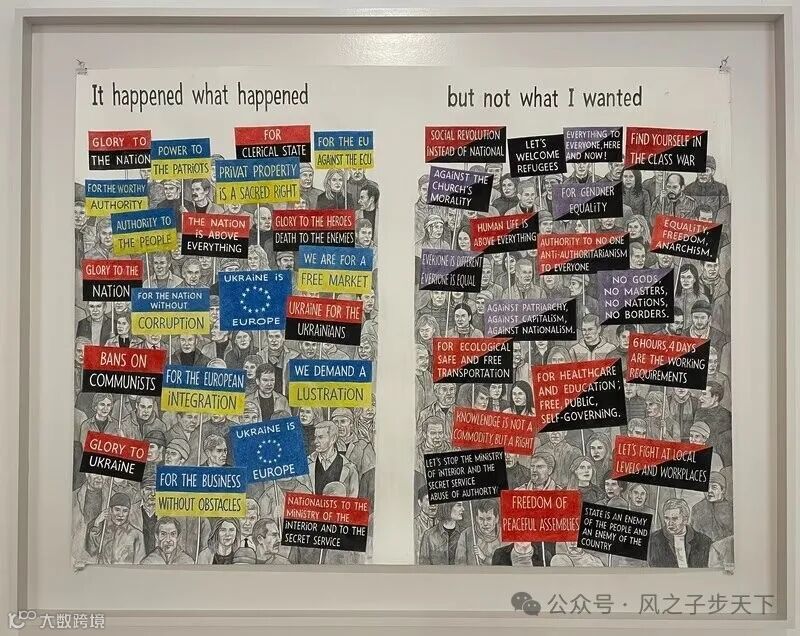 It happened what happened
GLORY TO
THE NATION
POWER TO
THE PATRIOTS
FOR
CLERICAL STATE
FOR THE EU
AGAINST THE ECU
FOR THE WORTHY
AUTHORITY
PRIVAT PROPERTY
IS A SACRED RIGHT
AUTHORITY TO
THE PEOPLE
THE NATION
IS ABOVE
EVERYTHING
GLORY TO THE HEROES
DEATH TO THE ENEMIES
GLORY TO THE
NATION
WE ARE FOR A
FREE MARKET
FOR THE NATION
WITHOUT
CORRUPTION
UKRAINE IS
EUROPE
UKRAINE FOR THE
UKRAINIANS
BANS ON
COMMUNISTS
FOR THE EUROPEAN
INTEGRATION
WE DEMAND A
LUSTRATION
GLORY TO
UKRAINE
UKRAINE IS
EUROPE
FOR THE BUSINESS
WITHOUT OBSTACLES
NATIONALISTS TO THE
MINISTRY OF THE
INTERIOR AND TO THE
SECRET SERVICE
but not what I wanted
SOCIAL REVOLUTION
INSTEAD OF NATIONAL
LET'S
WELCOME
REFUGEES
EVERYTHING TO
EVERYONE, HERE
AND NOW!
FIND YOURSELF IN
THE CLASS WAR
AGAINST THE
CHURCH'S
MORALITY
FOR GENDNER
EQUALITY
HUMAN LIFE IS
ABOVE EVERYTHING
AUTHORITY TO NO ONE
ANTI-AUTHORITARIANISM
TO EVERYONE
EQUALITY,
FREEDOM,
ANARCHISM.
EVERYONE IS DIFFERENT
EVERYONE IS EQUAL
NO GODS,
NO MASTERS,
NO NATIONS,
NO BORDERS.
AGAINST PATRIARCHY,
AGAINST CAPITALISM,
AGAINST NATIONALISM.
FOR ECOLOGICAL
SAFE AND FREE
TRANSPORTATION
FOR HEALTHCARE
AND EDUCATION;
FREE, PUBLIC,
SELF-GOVERNING.
6 HOURS, 4 DAYS
ARE THE WORKING
REQUIREMENTS
KNOWLENDGE IS NOT A
COMMODITY, BUT A RIGHT
LET'S STOP THE MINISTRY
OF INTERIOR AND THE
SECRET SERVICE
ABUSE OF AUTHORITY
LET'S FIGHT AT LOCAL
LEVELS AND WORKPLACES
FREEDOM OF
PEACEFUL ASSEMBLIES
STATE IS AN ENEMY
OF THE PEOPLE AND
AN ENEMY OF THE
COUNTRY
公众号 · 风之子步天下
大数跨境